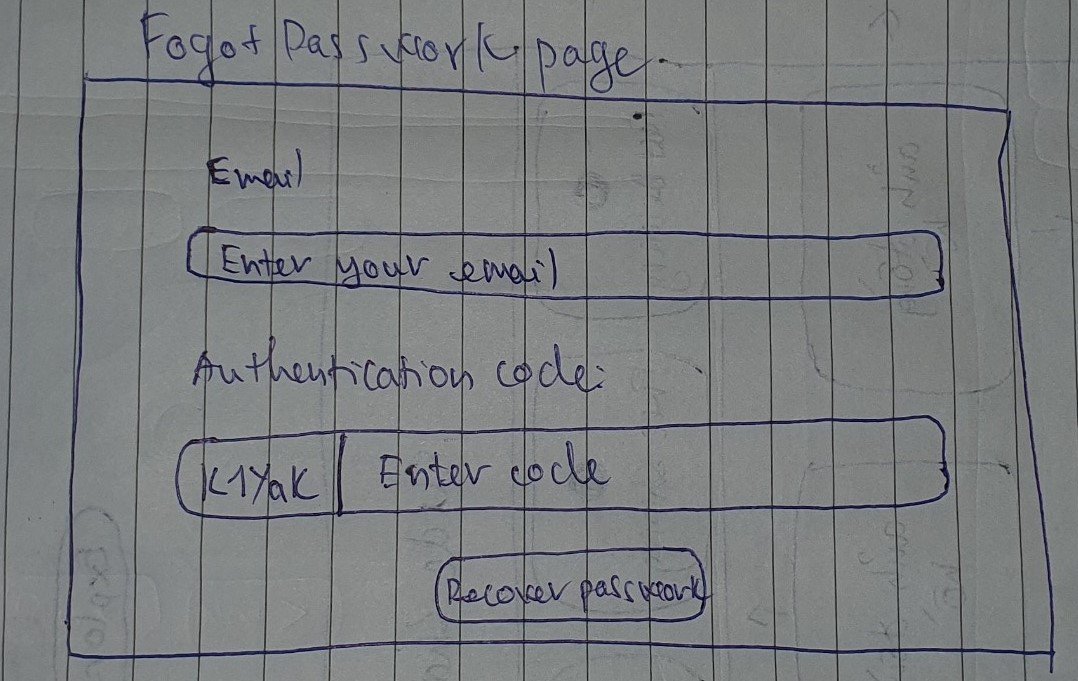 Fogot Passwork page.
Email
Enter your email
Authentication code:
K1YaK Enter code
Recover passwork